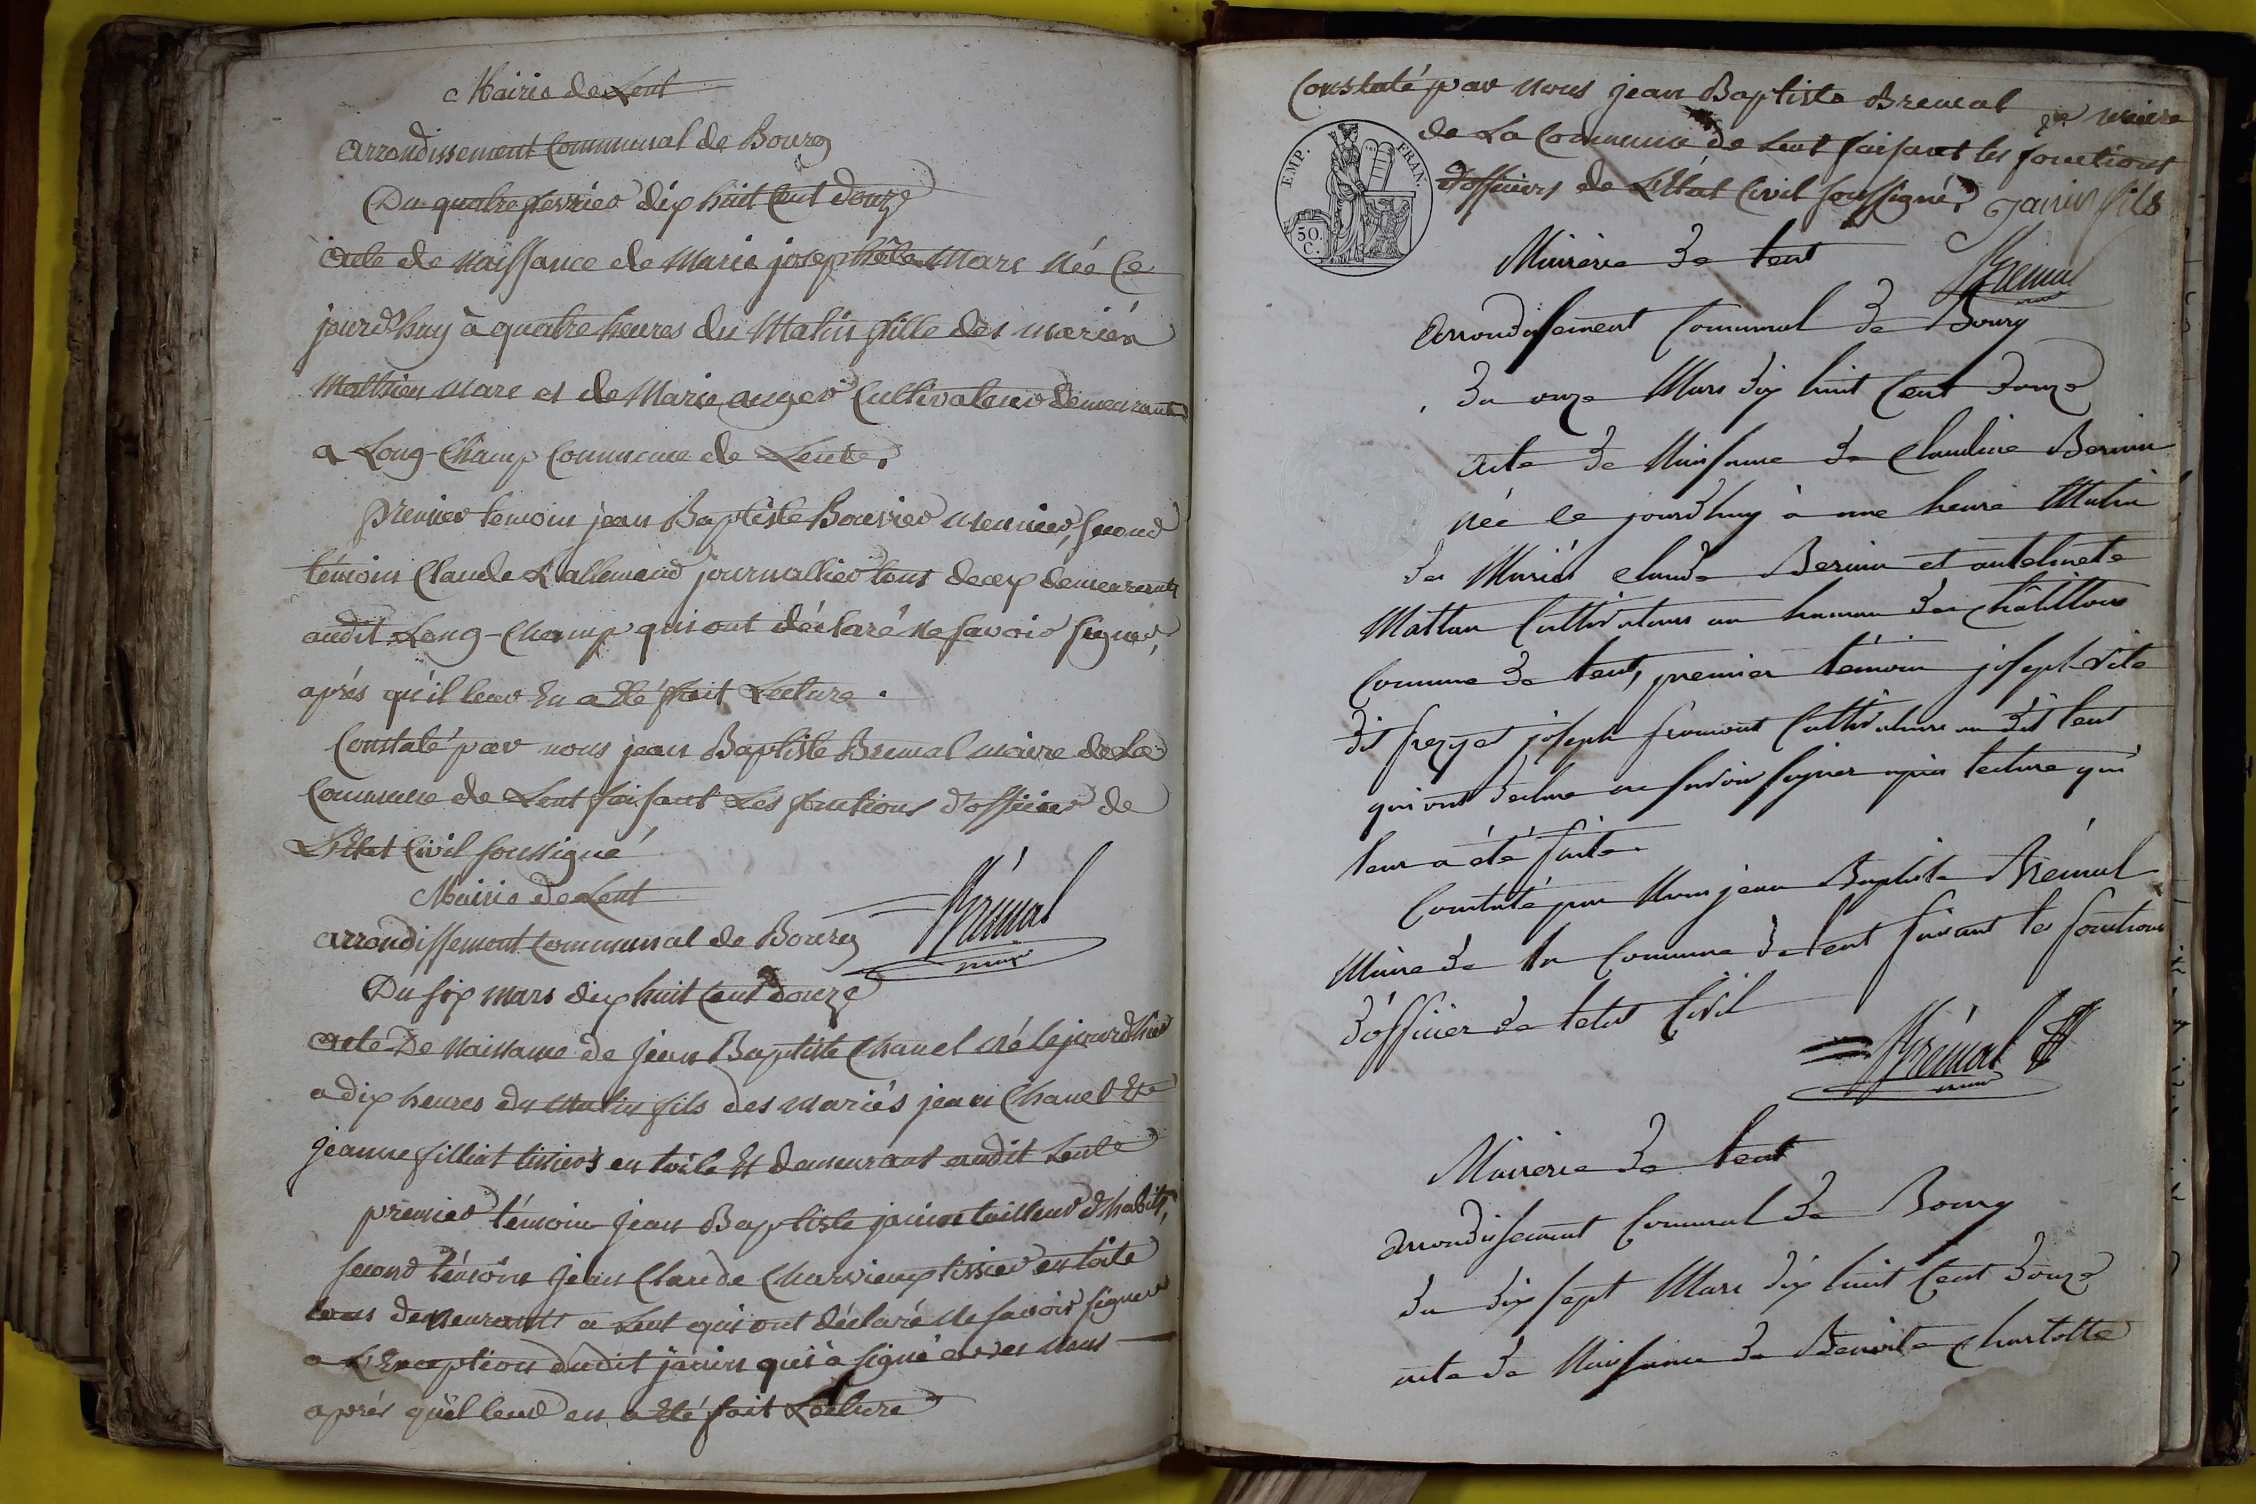 Mairie de Lent
arrondissement Communal de Bourg
Du quatre fevrier dix huit Cent douze
acte de Naissance de Marie josephte Marc Née Ce
jourd'huy à quatre heures du Matin fille des mariés
Mathieu Marc et de Marie auger Cultivateur demeurant
a Long-Champ Commune de Lent.
premier temoin jean Baptiste Bouvier Meunier, second
témoin Claude Lallemand journallier tous deux demeurants
audit Long-Champ qui ont déclaré ne savoir signer,
aprés qu'il leur En a Eté fait Lecture.
Constaté par nous jean Baptiste Bremal maire de La
Commune de Lent faisant Les fonctions d'officier de
L'Etat Civil soussigné
Brémal
maire
Mairie de Lent
arrondissement Communal de Bourg
Du six mars dix huit Cent douze
acte De Naissance de jean Baptiste Chanel né le jourd'hier
a dix heures du Matin fils des mariés jean Chanel Et
jeanne filliat tissiers en toile Et demeurant audit Lent
premier témoin jean Baptiste janin tailleur d'habits,
second témoin jean Claude tissier en toile
tous demeurants a Lent qui ont déclaré ne savoir signer
a L'Exception dudit janin qui à signé avec Nous
aprés qu'il leur en a Eté fait Lecture
Constaté par Nous jean Baptiste Bremal maire
de La Commune de Lent faisant les fonctions
d'officiers de L'Etat Civil soussigné. Janin fils
EMP. FRAN.
50. C.
Bremal
Mairerie de Lent
arrondissement Communal de Bourg
du onze Mars dix huit Cent douze
acte de Naissance de Claudine Bernin
née le jourdhuy à une heure Matin
des Mariés claude Bernin et antelmete
Mattan Cultivateurs au hameau des Châtillons
Commune de Lent, premier témoin joseph Vite
dit joseph fromont Cultivateurs au dit Lent
qui ont declare ne savoir signer après lecture qui
leur a été faite.
Constaté par Nous jean Baptiste Brémal
Maire de la Commune de Lent faisant les fonctions
d'officier de letat Civil
Brémal
maire
Mairerie de Lent
arrondissement Communal de Bourg
du dix sept Mars dix huit Cent douze
acte de Naissance de Benoite Charlotte